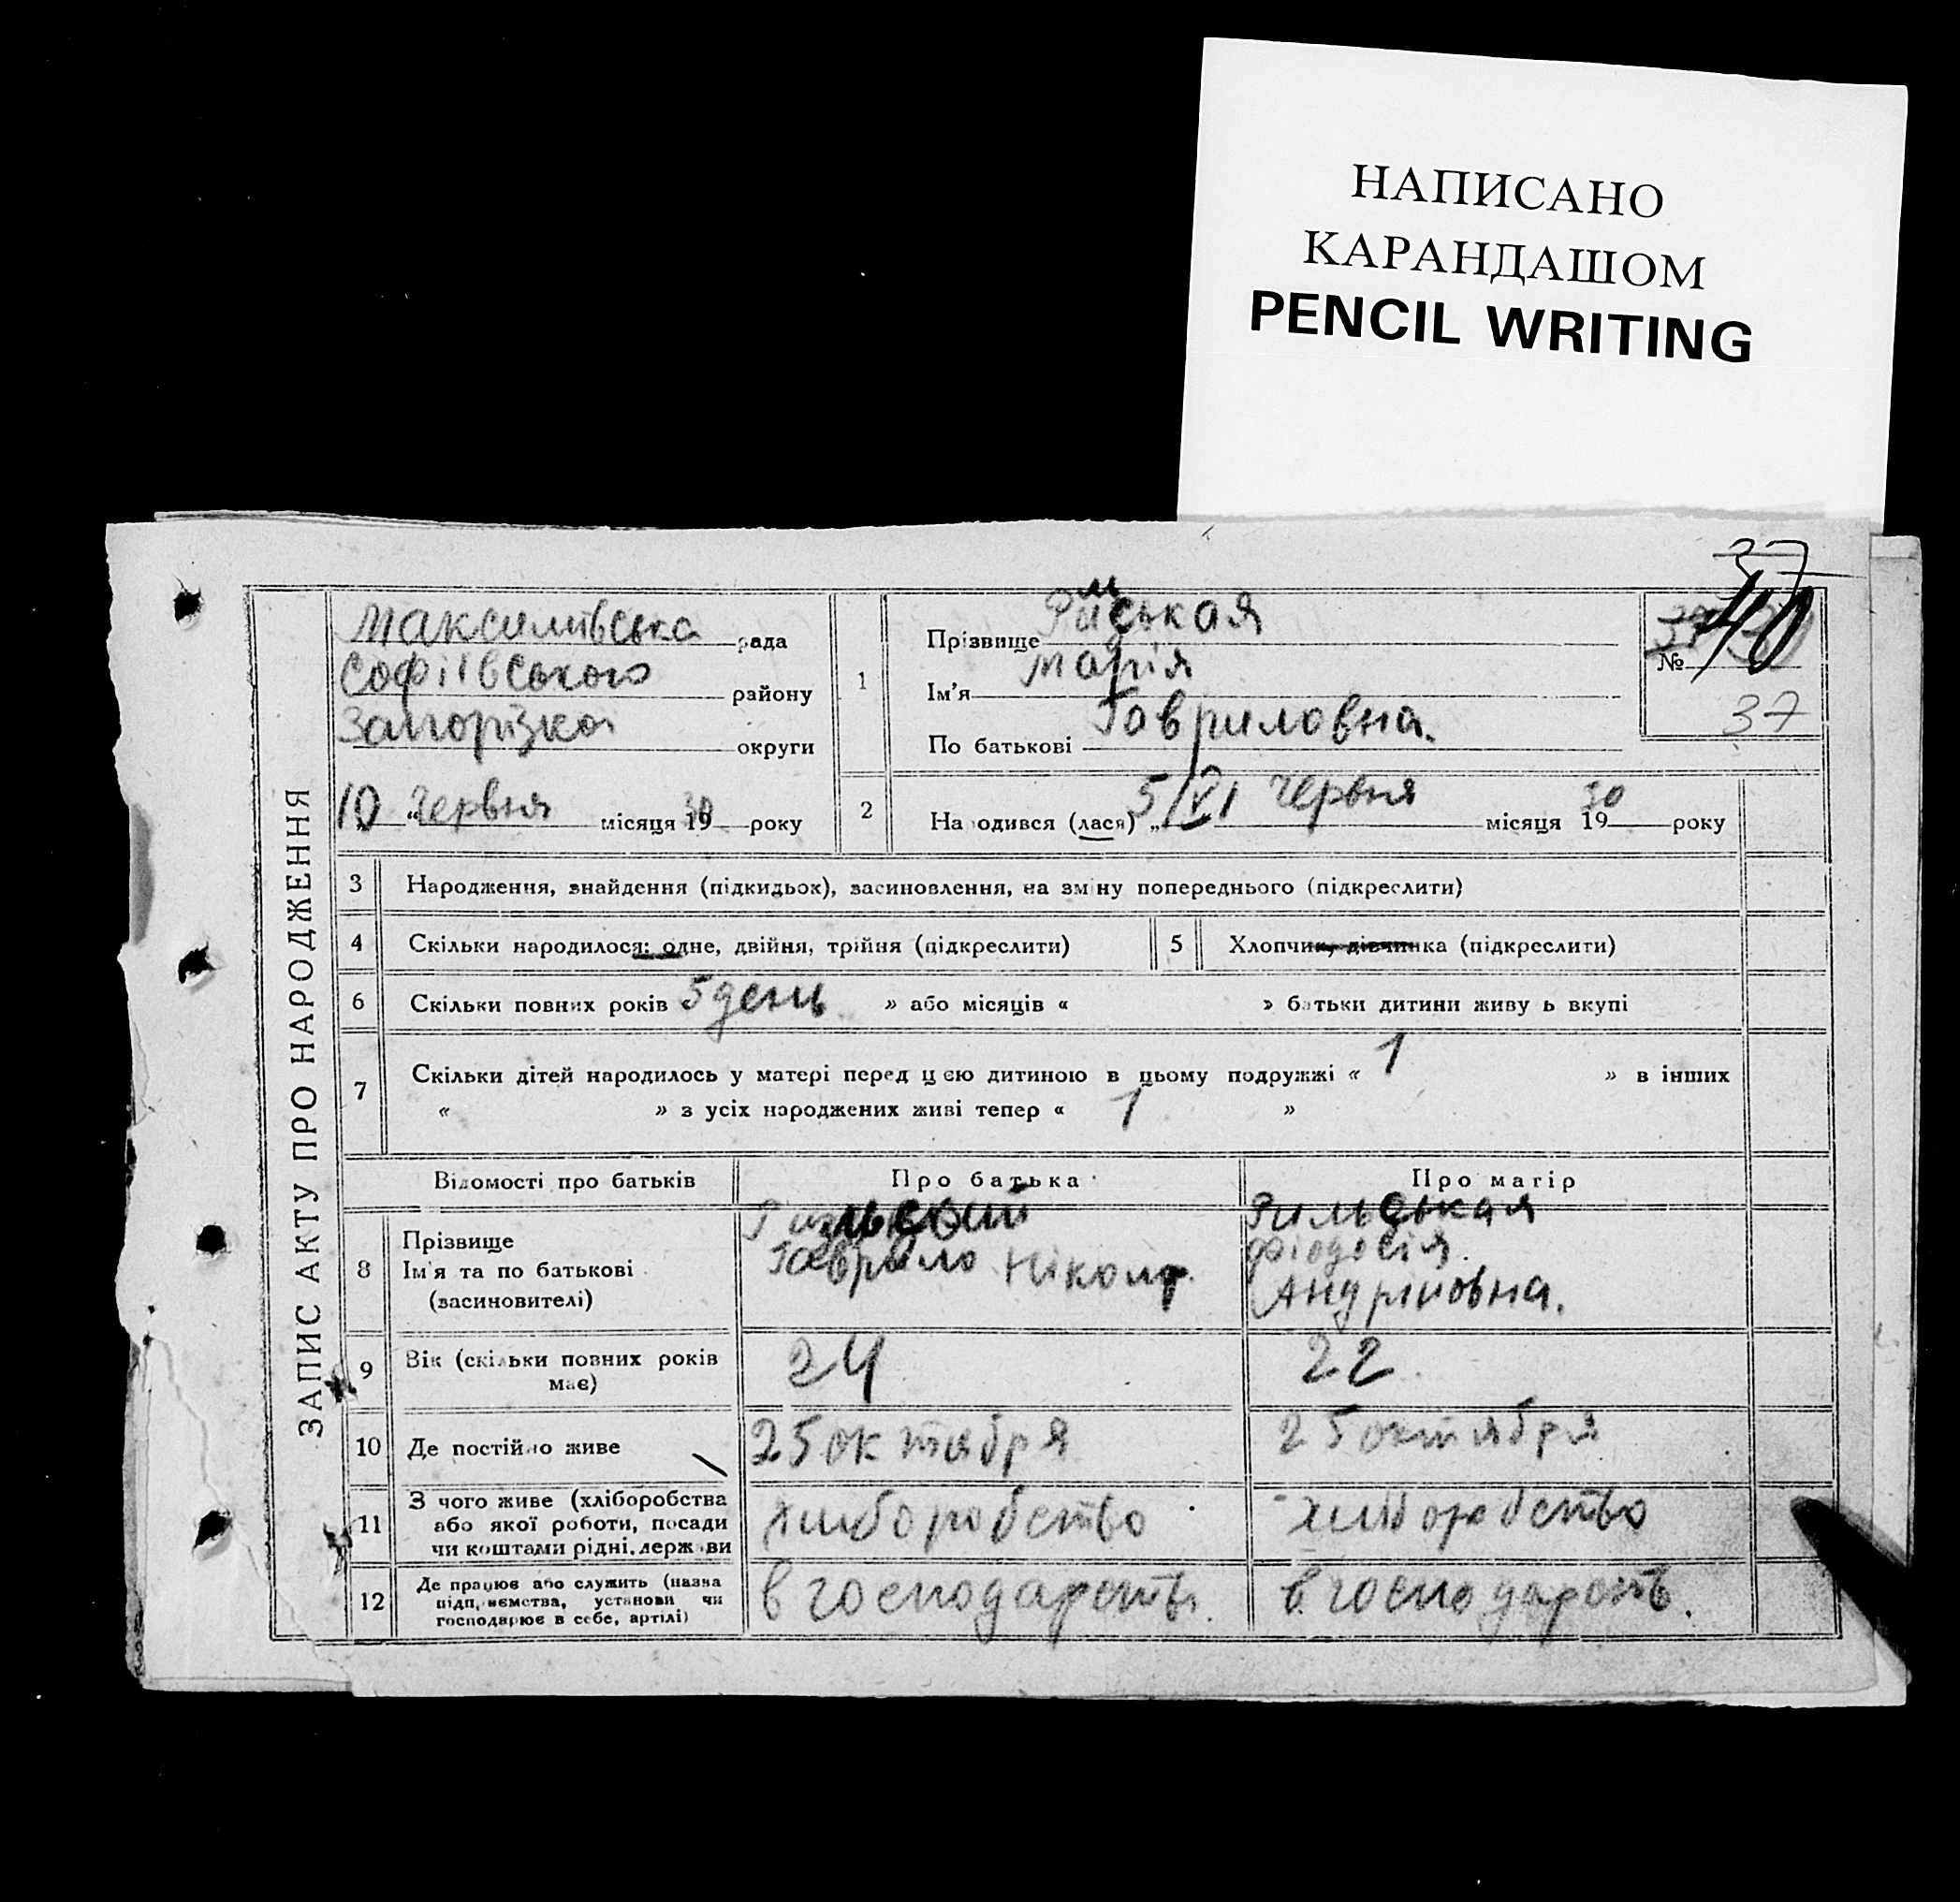 НАПИСАНО
КАРАНДАШОМ
PENCIL WRITING
37
40
ЗАПИС АКТУ ПРО НАРОДЖЕННЯ
Максимівська рада
Софіївського району
Запорізкої округи
10 " Червня місяця 1930 року
1
Прізвище Римськая
Ім'я Марія
По батькові Гавриловна.
№
37
2
Народився (лася) „ 5/VI Червня місяця 1930 року
3 Народження, знайдення (підкидьок), засиновлення, на зміну попереднього (підкреслити)
4 Скільки народилося: одне, двійня, трійня (підкреслити)
5 Хлопчик, дівчинка (підкреслити)
6 Скільки повних років 5 день » або місяців « » батьки дитини живуть вкупі
7 Скільки дітей народилось у матері перед цією дитиною в цьому подружжі « 1 » в інших
« » з усіх народжених живі тепер « 1 »
Відомості про батьків Про батька Про матір
8 Прізвище
Ім'я та по батькові
(засиновителі)
Гаврило Нікол
Рильськая
Фіодосія
Андріновна.
9 Вік (скільки повних років
має)
24 22
10 Де постійно живе 25 октября 25 октября
11 З чого живе (хліборобства
або якої роботи, посади
чи коштами рідні, держави
хліборобство хліборобство
12 Де працює або служить (назва
підприємства, установи чи
господарює в себе, артілі)
в господарсть. в господарсть.